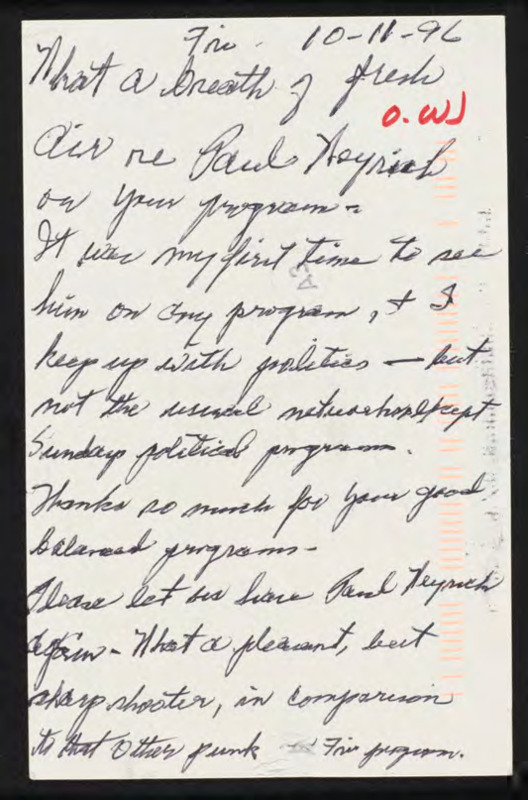 Fri. 10-11-96
What a breath of fresh
O.W
air re Paul Weyrich
on your program.
It was my first time to see
him on any program, & I
keep up with politics — but
not the usual networks except
Sunday political programs.
Thanks so much for your good
balanced programs -
Please let us have Paul Weyrich
again - What a pleasant, but
sharp shooter, in comparison
to that other punk Fri program.